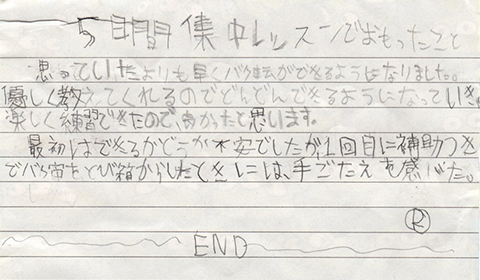 5日間集中レッスンでおもったこと
思っていたよりも早くバク転ができるようになりました。
優しく教えてくれるのでどんどんできるようになっていき、
楽しく練習できたので良かったと思います。
最初はできるかどうか不安でしたが、1回目に補助つき
でバク宙をとび箱からしたときには、手ごたえを感じた。
R
END